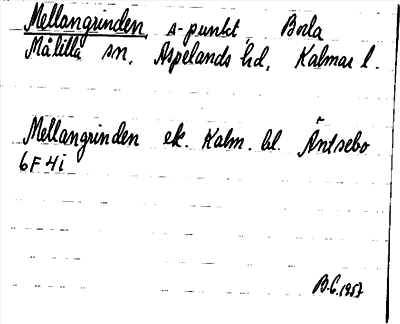 Mellangrinden, s-punkt, Borla
Målilla sn, Aspelands hd, Kalmar l.
Mellangrinden ek. Kalm. bl. Äntsebo
6F4i
B.G. 1957